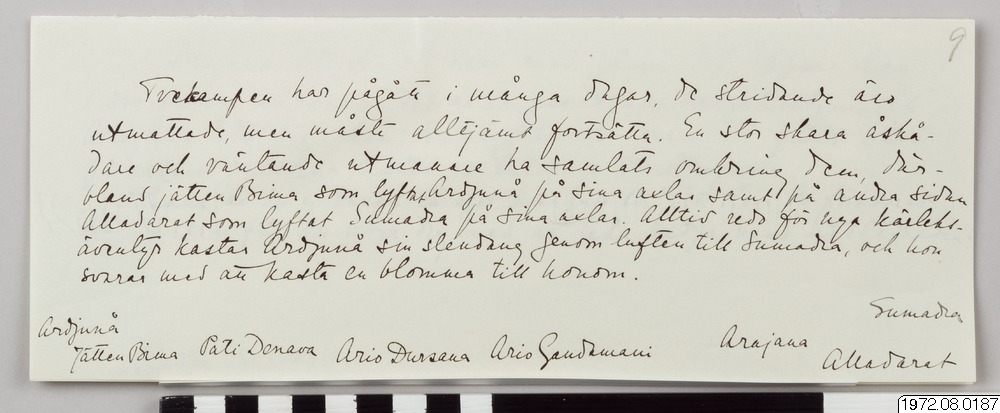 9
Tvekampen har pågått i många dagar, de stridande äro
utmattade, men måste alltjämt fortsätta. En stor skara åskå-
dare och väntande utmanare ha samlats omkring dem, där-
bland jätten Bima som lyftat Ardjunå på sina axlar samt på andra sidan
Alladarat som lyftat Sumadra på sina axlar. Alltid redo för nya kärleks-
äventyr kastar Ardjunå sin slendang genom luften till Sumadra, och hon
svarar med att kasta en blomma till honom.
Sumadra
Ardjunå
Jätten Bima Pati Denava Ario Dursana Ario Gandamani Arajana Alladarat
1972.08.0187